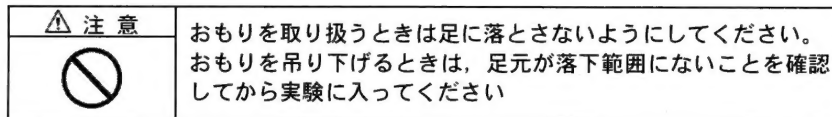 ⚠ 注 意
おもりを取り扱うときは足に落とさないようにしてください。
おもりを吊り下げるときは，足元が落下範囲にないことを確認
してから実験に入ってください